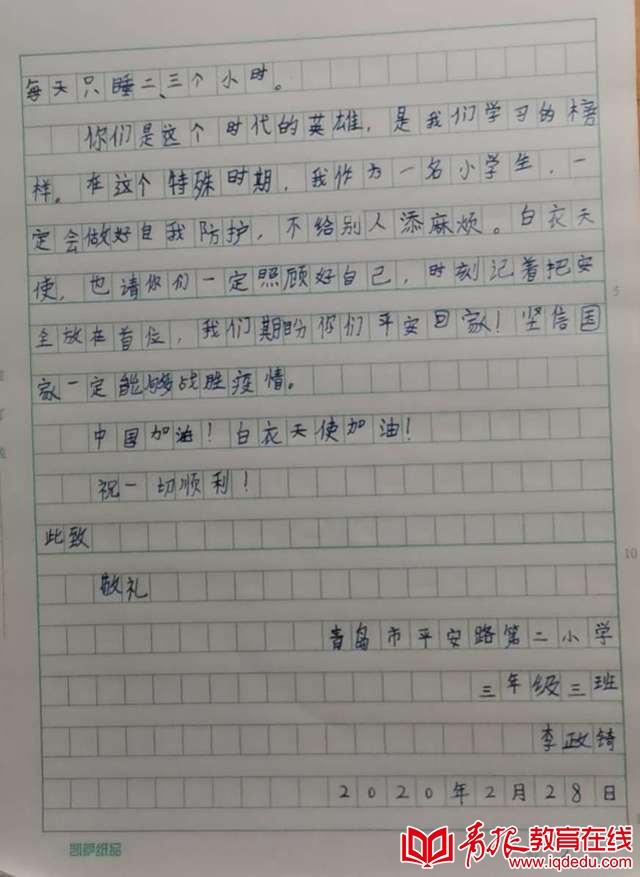 每天只睡二、三个小时。
你们是这个时代的英雄，是我们学习的榜
样。在这个特殊时期，我作为一名小学生，一
定会做好自我防护，不给别人添麻烦。白衣天
使，也请你们一定照顾好自己，时刻记着把安
全放在首位，我们期盼你们平安回家！坚信国
家一定能够战胜疫情。
中国加油！白衣天使加油！
祝一切顺利！
此致
敬礼
青岛市平安路第二小学
三年级三班
李政锜
2020年2月28日
5
10
凯萨纸品
青报教育在线
www.iqdedu.com